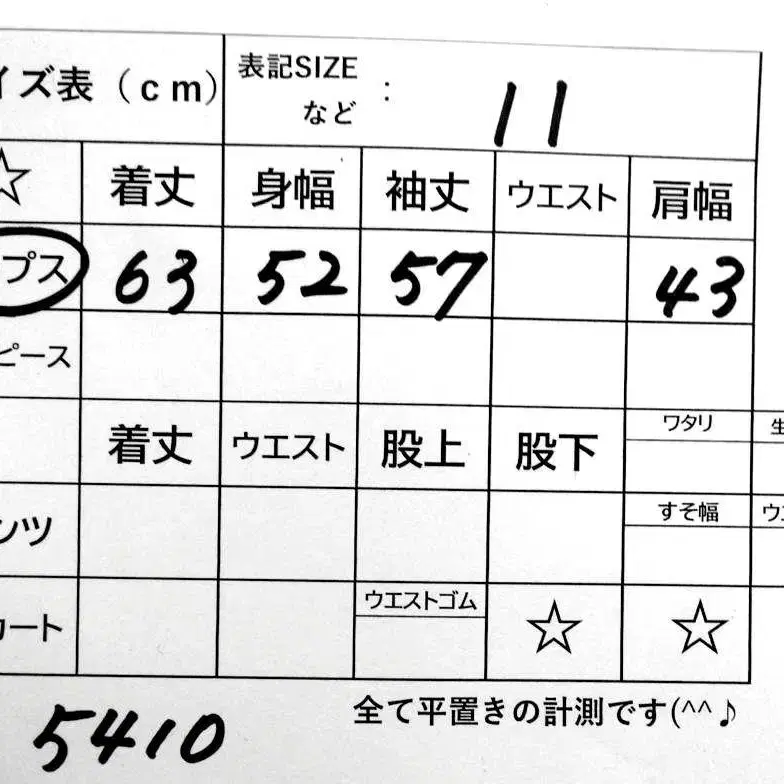 イズ表（ｃｍ） 表記SIZE など : 11
☆ 着丈 身幅 袖丈 ウエスト 肩幅
プス 63 52 57 43
ピース
着丈 ウエスト 股上 股下 ワタリ
ンツ すそ幅
カート ウエストゴム ☆ ☆
全て平置きの計測です(^^♪
5410